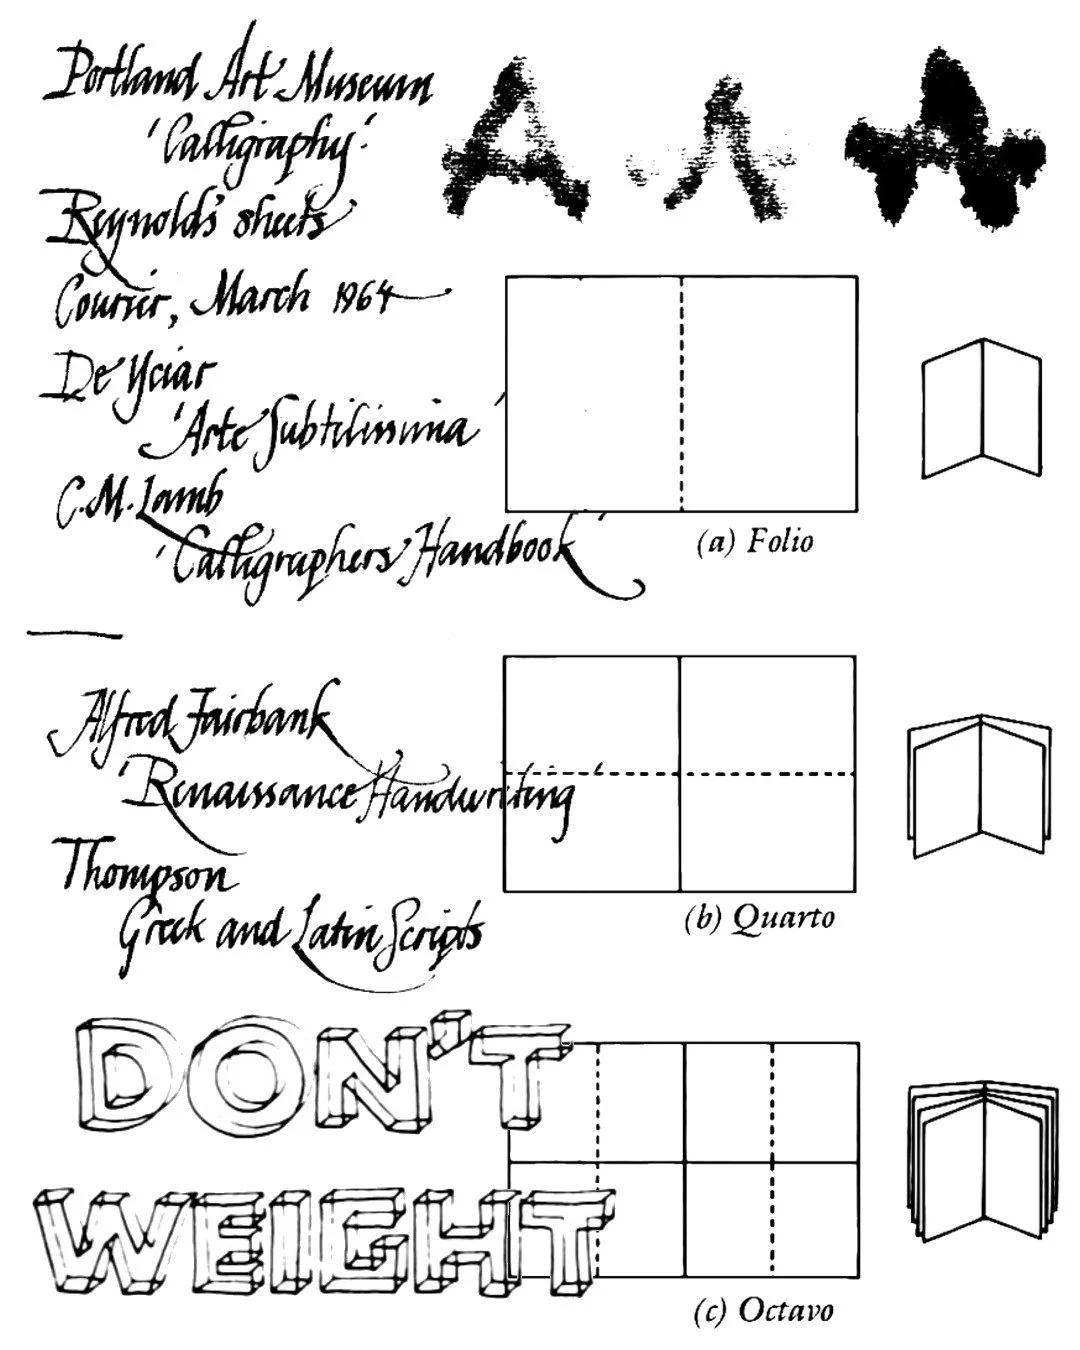 Portland Art Museum
'Calligraphy'
Reynolds' sheets
Courier, March 1964
De Yciar
'Arte Subtilissima'
C.M. Lamb
'Calligraphers Handbook'
Alfred Fairbank
'Renaissance Handwriting'
Thompson
Greek and Latin Scripts
DON'T
WEIGHT
A A A
(a) Folio
(b) Quarto
(c) Octavo